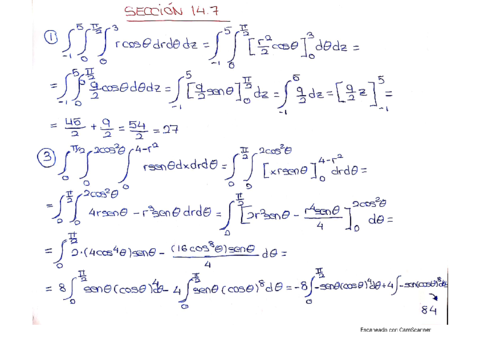 SECCIÓN 14.7
① ∫₋₁⁵ ∫₀^(π/2) ∫₀³ r cosθ dr dθ dz = ∫₋₁⁵ ∫₀^(π/2) [r²/2 cosθ]₀³ dθ dz =
= ∫₋₁⁵ ∫₀^(π/2) 9/2 cosθ dθ dz = ∫₋₁⁵ [9/2 senθ]₀^(π/2) dz = ∫₋₁⁵ 9/2 dz = [9/2 z]₋₁⁵ =
= 45/2 + 9/2 = 54/2 = 27
③ ∫₀^(π/2) ∫₀^(2cos²θ) ∫₀^(4-r²) r senθ dx dr dθ = ∫₀^(π/2) ∫₀^(2cos²θ) [x r senθ]₀^(4-r²) dr dθ =
= ∫₀^(π/2) ∫₀^(2cos²θ) 4r senθ - r³ senθ dr dθ = ∫₀^(π/2) [2r² senθ - r⁴ senθ/4]₀^(2cos²θ) dθ =
= ∫₀^(π/2) 2·(4cos⁴θ) senθ - (16cos⁸θ) senθ/4 dθ =
= 8 ∫₀^(π/2) senθ (cosθ)⁴ dθ - 4 ∫₀^(π/2) senθ (cosθ)⁸ dθ = -8 ∫₀^(π/2) -senθ (cosθ)⁴ dθ + 4 ∫ -sen(cosθ)⁸ dθ
84
Escaneado con CamScanner